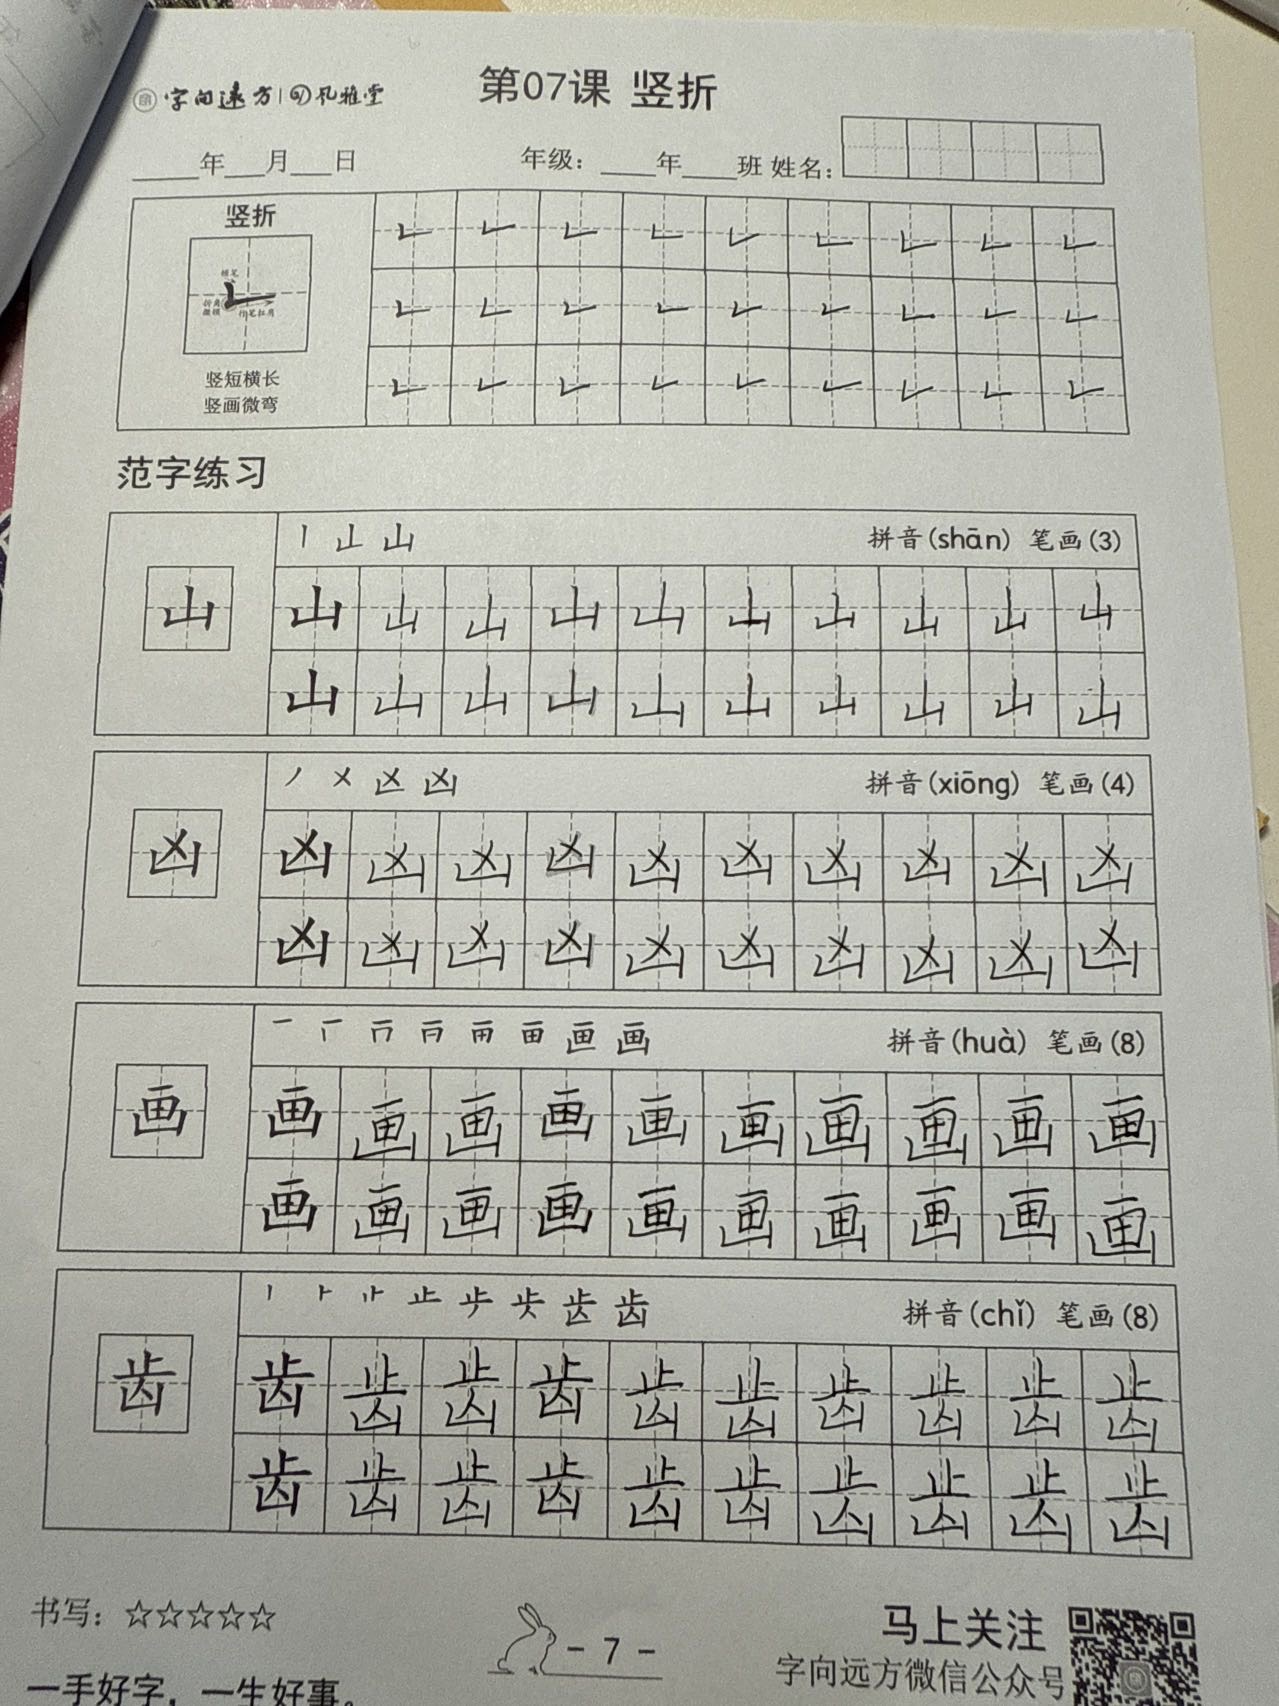 字向远方 孔雅堂
第07课 竖折
____年___月___日 年级：____年____班 姓名：
竖折
竖短横长
竖画微弯
范字练习
丨 山 拼音(shān) 笔画(3)
山 山 山 山 山 山 山 山 山 山 山
山 山 山 山 山 山 山 山 山 山
丿 㐅 凶 拼音(xiōng) 笔画(4)
凶 凶 凶 凶 凶 凶 凶 凶 凶 凶 凶
凶 凶 凶 凶 凶 凶 凶 凶 凶 凶
一 画 拼音(huà) 笔画(8)
画 画 画 画 画 画 画 画 画 画 画
画 画 画 画 画 画 画 画 画 画
丨 止 齿 拼音(chǐ) 笔画(8)
齿 齿 齿 齿 齿 齿 齿 齿 齿 齿 齿
齿 齿 齿 齿 齿 齿 齿 齿 齿 齿
书写：☆☆☆☆☆
- 7 -
马上关注
字向远方微信公众号
一手好字，一生好事。